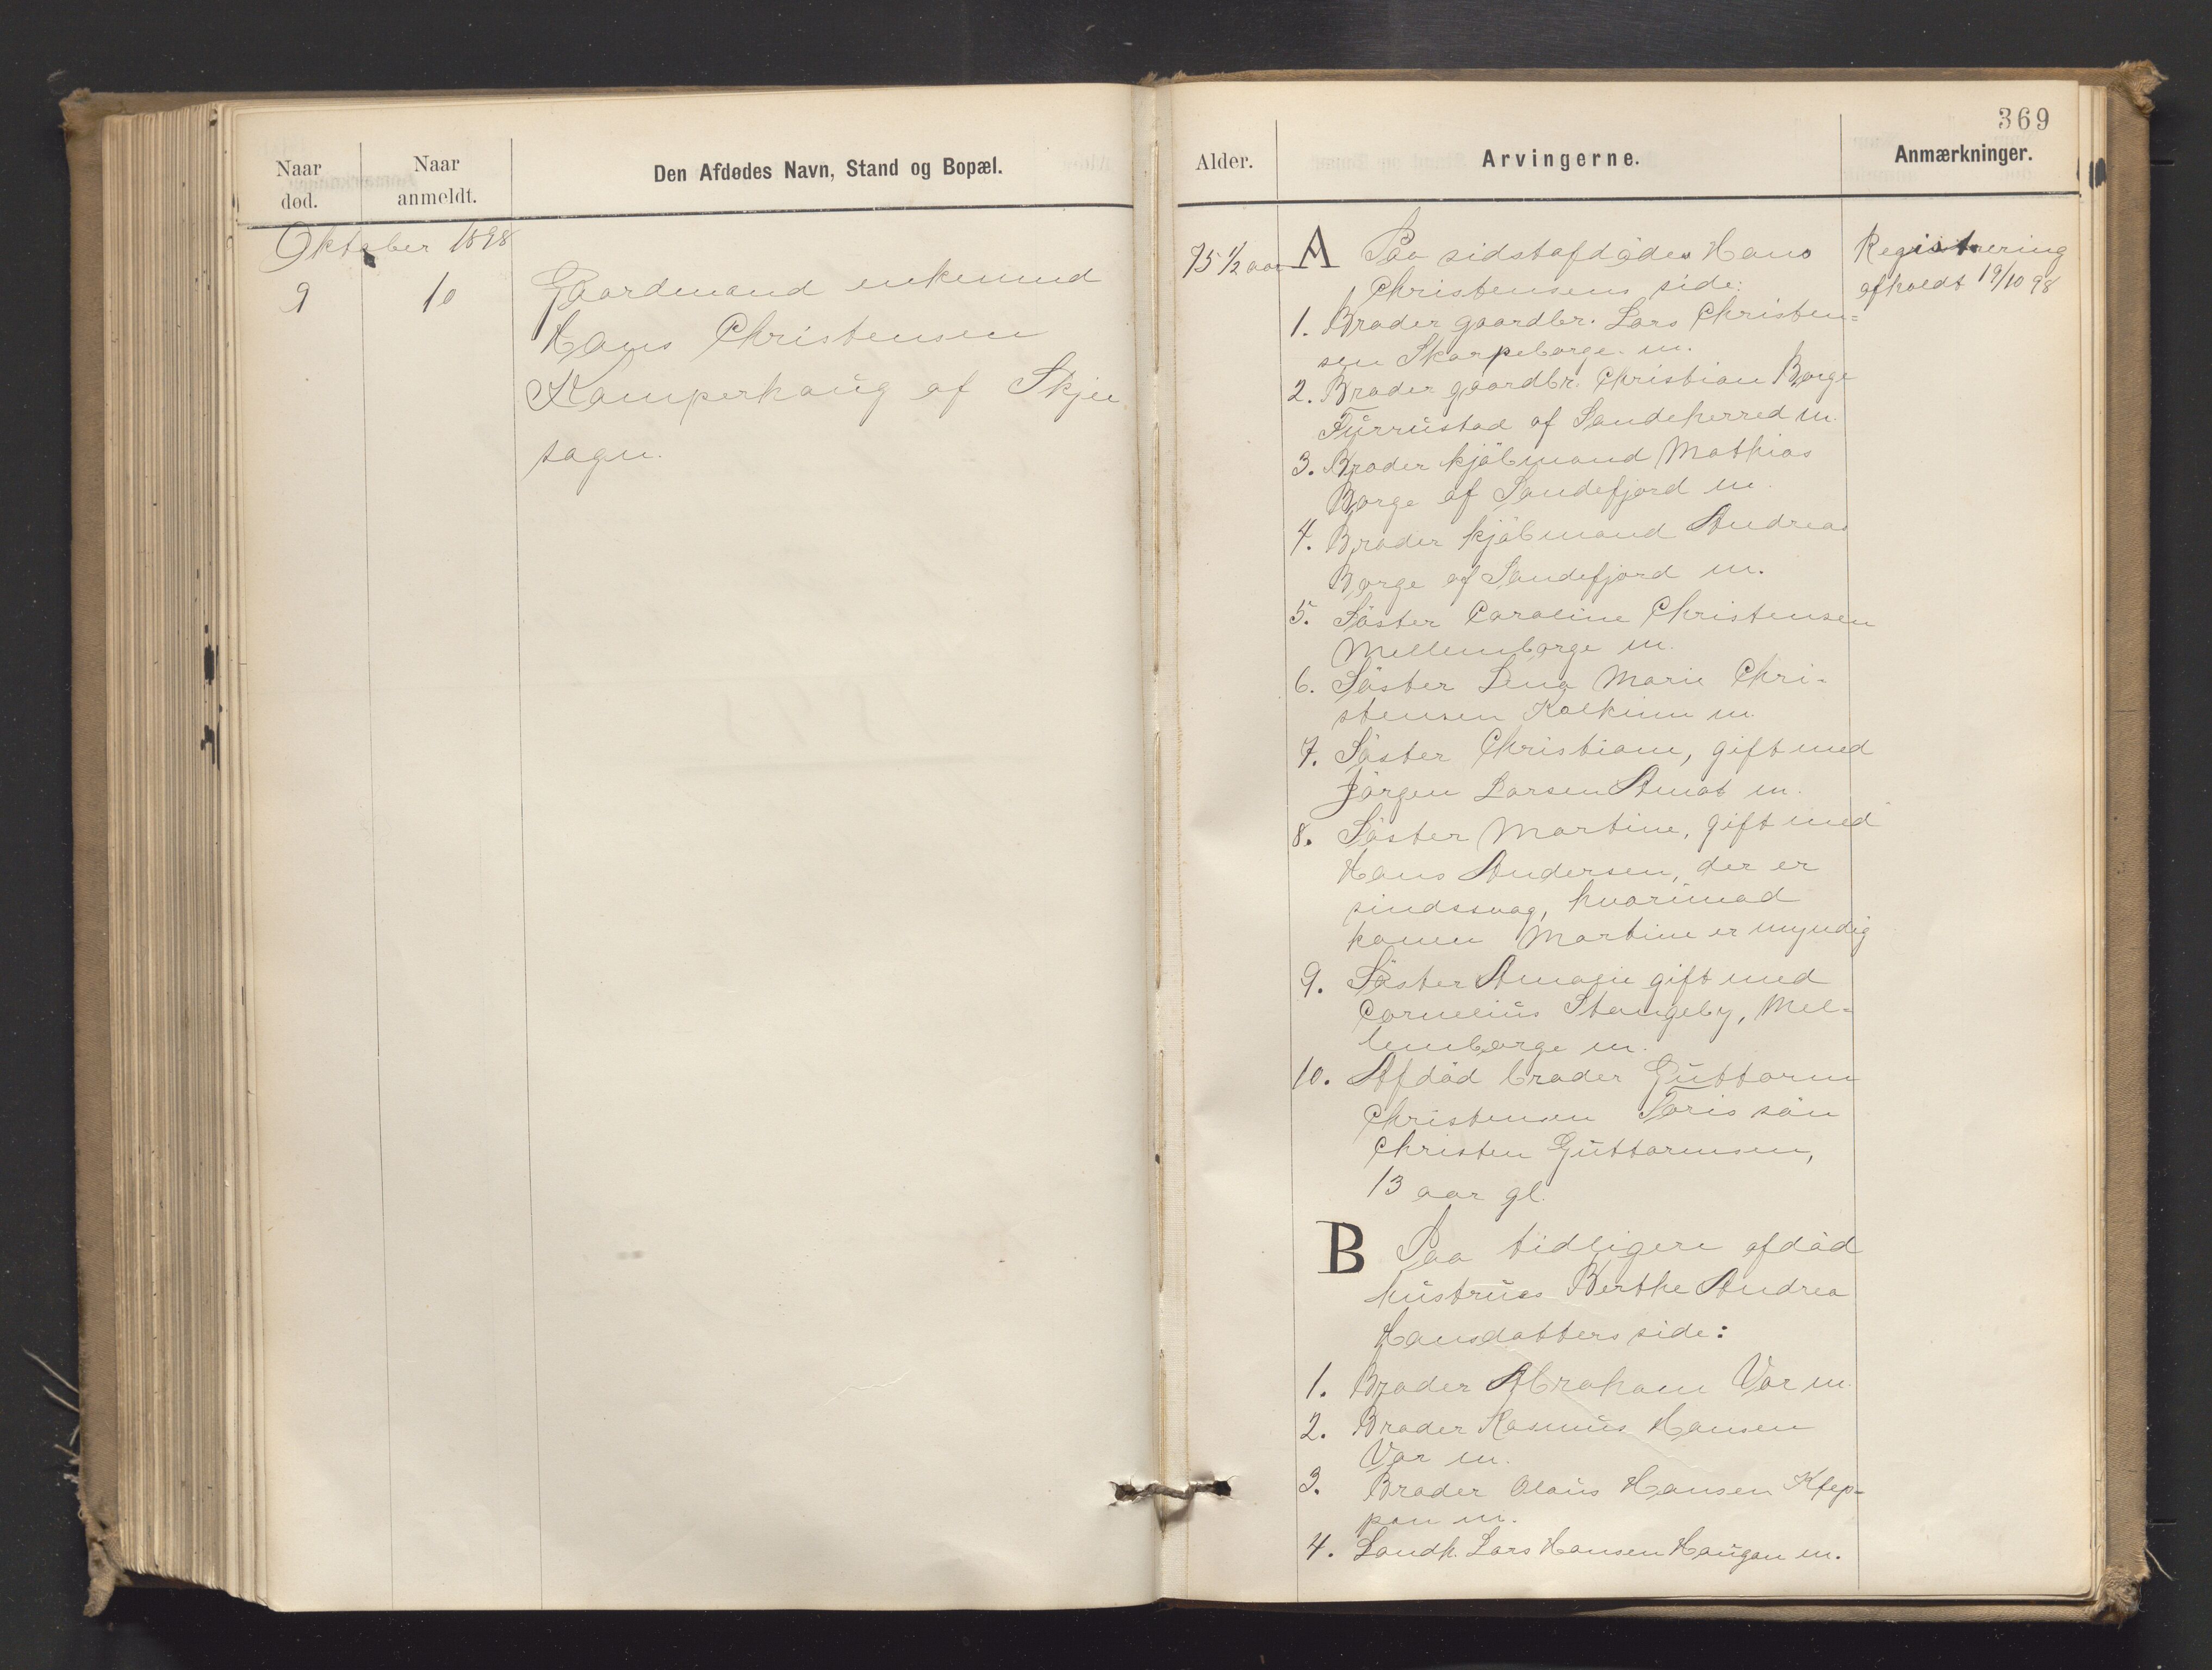 369
Naar
død.
Naar
anmeldt.
Den Afdødes Navn, Stand og Bopæl.
Oktober 1898
9
10
Gaardmand enkemand
Hans Christensen
Kamperhaug af Skjee
sogn.
Alder.
Arvingerne.
Anmærkninger.
75 1/2 aar
A Paa sidstafdødes Hans
Christensens side:
1. Broder gaardbr. Lars Christen=
sen Skorpeborge. m.
2. Broder gaardbr. Christian Borge
Furustad af Sandeherred m.
3. Broder kjöbmand Mathias
Borge af Sandefjord m.
4. Broder kjöbmand Andreas
Borge af Sandefjord m.
5. Söster Caroline Christensen
Mellemborge m.
6. Söster Lena Marie Chri-
stensen m.
7. Söster Christiane, gift med
Jörgen Larsen m.
8. Söster Martine, gift med
Hans Andersen, der er
sindssvag, hvorimod
konen Martine er myndig
9. Söster Amalie gift med
Cornelius Stangeby, Mel=
lemborge m.
10. Afdöd broder Guttorm
Christensen sön
Christen Guttormsen,
13 aar gl.
B Paa tidligere afdöd
hustrues Berthe Andrea
Hansdatters side:
1. Broder Abraham Vor m.
2. Broder Rasmus Hansen
Vor m.
3. Broder Olaus Hansen Klep-
pan m.
4. Landh. Lars Hansen Haugan m.
Registrering
afholdt 19/10 98